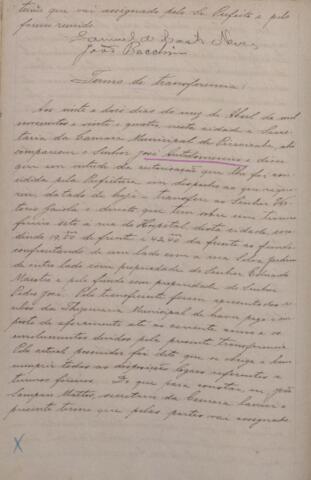 termo que vai assignado pelo Sr. Prefeito e pelo
foreiro
Samuel de Castro Neves
João
Termo de transferencia:
Aos vinte e dois dias do mez de Abril de mil
novecentos e vinte e quatro, nesta cidade e Secre-
taria da Camara Municipal de Piracicaba, ahi
compareceu o Senhor José e disse
que em virtude da autorisação que lhe foi con-
cedida pela Prefeitura em despacho ao que reque-
reu, datado de hoje, transfere ao Senhor
o direito que tem sobre um terreno
foreiro sito a rua do Hospital desta cidade me-
dindo de frente e 42,00 da frente ao fundo
confrontando de um lado com a rua Silva Jardim
de outro lado com propriedade do Senhor
e pelo fundo com propriedade do Senhor
Pedro José. Pelo transferente foram apresentados re-
cibos da Thezouraria Municipal de haver pago o im-
posto de aforamento até ao corrente anno e os
emolumentos devidos pela presente transferencia.
Pelo actual possuidor foi dito que se obriga a bem
cumprir todas as disposições legaes referentes a
terrenos foreiros. Do que para constar eu João
Sampaio Mattos, secretario da Camara lavrei o
presente termo que pelas partes vai assignado.